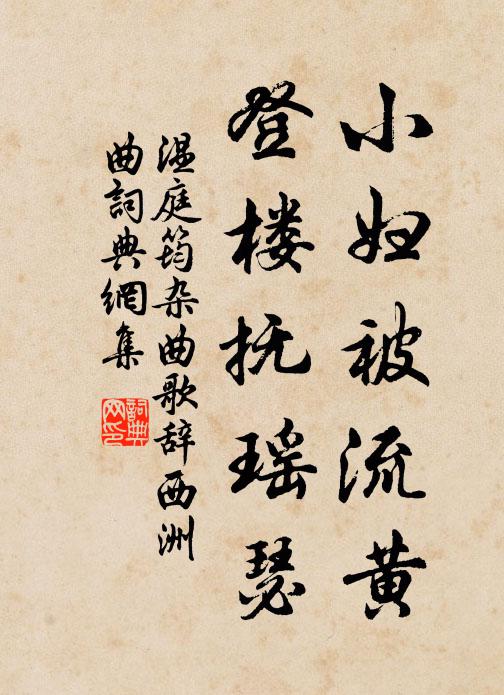 小妇被流黄
登楼抚瑶瑟
温庭筠杂曲歌辞西洲
曲詞典網集
詞典网印